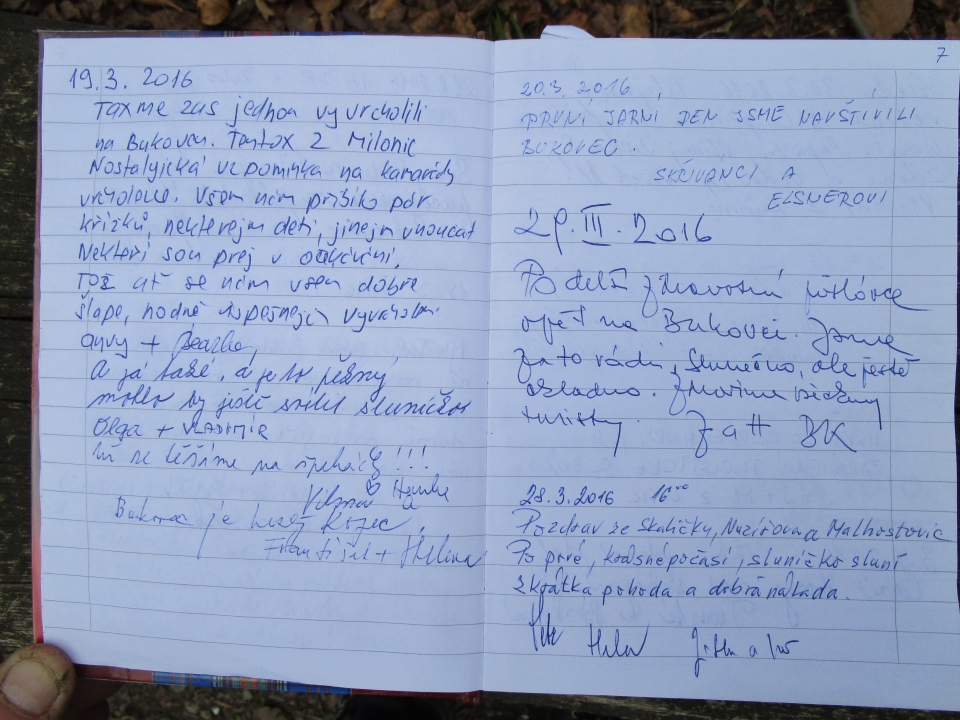 19.3. 2016
Taxme zas jednou vyvrcholili
na Bukovcu. Tentox z Milonic
Nostalgická vzpomínka na kamarády
vrcholové. Všem nám přibilo pár
křížků, nekterejm deti, jinejm vnoučat
Nekteří sou prej v očekávání.
Tož ať se nám všem dobře
šlape, hodně úspešnejch vyvrcholení
A já také, a je to pěkný
mohlo by ještě svítit sluníčko
Olga + VLADIMÍR
Už se těšíme na špekáčky!!!
Vilma a Hanka
Bukovec je hezký kopec.
František + Helena
7
20.3. 2016
PRVNÍ JARNÍ DEN JSME NAVŠTÍVILI
BUKOVEC.
SKŘIVÁNCI A
ELSNEROVI
2P.III.2016
Po delší zdravotní
opět na Bukovci. Jsme
za to rádi, slunečno, ale ještě
chladno. Zdravíme všechny
turisty. Z a H BK
28.3.2016 16⁰⁰
Pozdrav ze Skaličky, Nuzířova a Malhostovic
Po prvé, krásné počasí, sluníčko sluní
zkrátka pohoda a dobrá nálada.
Petr Jitka a